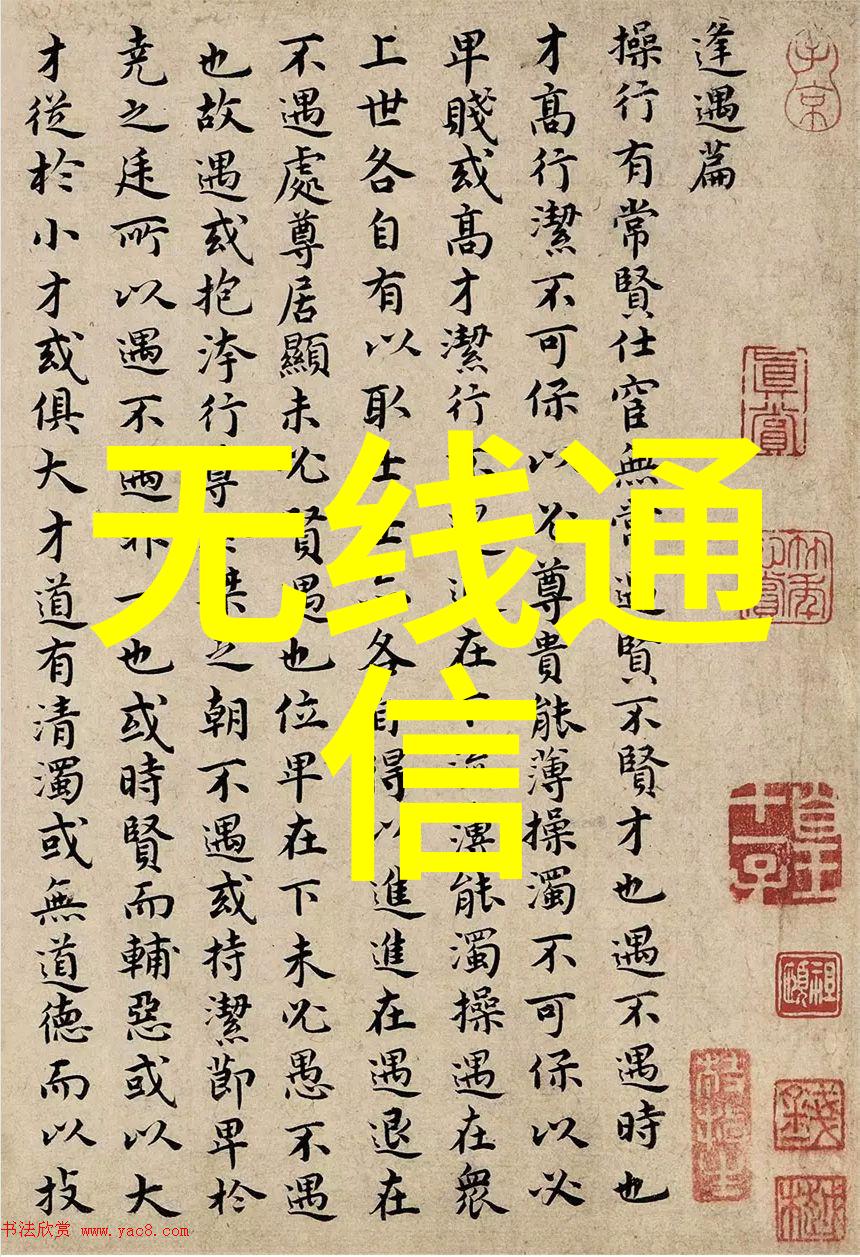 逢遇篇
操行有常賢仕宦無常遇賢不賢才也遇不遇時也
才高行潔不可保以必尊貴能薄操濁不可保以必
卑賤或高才潔行不遇退在下流薄能濁操遇在衆
上世各自有以取士士亦各自得以進進在遇退在
不遇處尊居顯未必賢遇也位卑在下未必愚不遇
也故遇或抱洿行尊於桀之朝不遇或持潔節卑於
堯之廷所以遇不遇非一也或時賢而輔惡或以大
才從於小才或俱大才道有清濁或無道德而以技
無线通信
真賞
書法欣赏 www.yac8.com